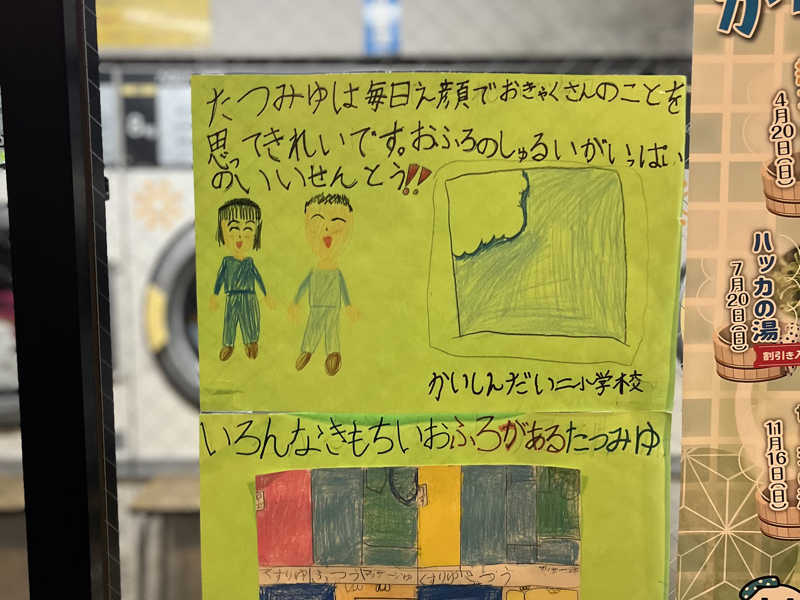 たつみゆは毎日え顔でおきゃくさんのことを
思ってきれいです。おふろのしゅるいがいっぱい
のいいせんとう!!
かいしんだい二小学校
いろんなきもちいおふろがあるたつみゆ
くすりゆ ふつう マッサージゆ くすりゆ ふつう
4月20日(日)
ハッカの湯
7月20日(日)
割引き入
11月16日(日)